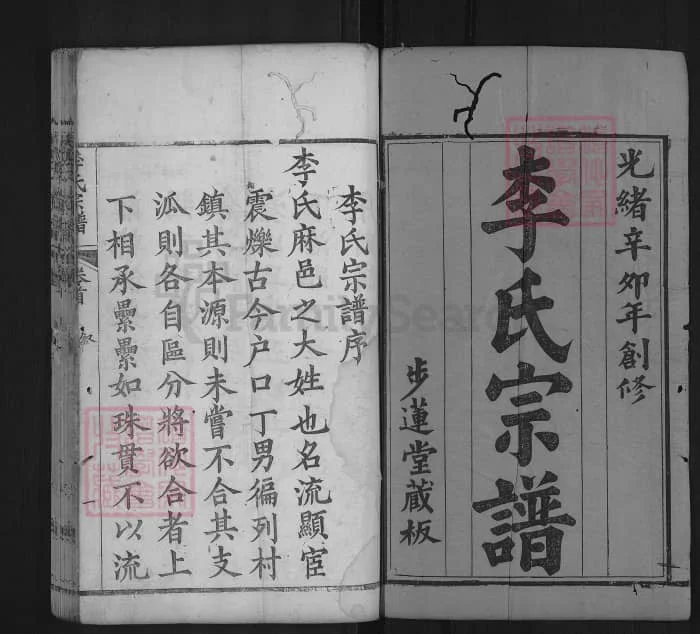 光緒辛卯年創修
李氏宗譜
步蓮堂藏板
李氏宗譜序
李氏麻邑之大姓也名流顯宦
震爍古今户口丁男徧列村
鎮其本源則未嘗不合其支
派則各自區分將欲合者上
下相承纍纍如珠貫不以流
李氏宗譜 卷首 序
FamilySearch